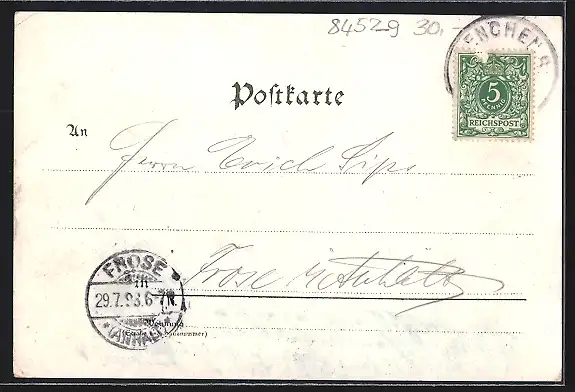 84529 30.-
ENCHEN
5
PFENNIG
REICHSPOST
Postkarte
An
Herrn Erich Sips
Frose in Anhalt
FROSE
29.7.98.6-7N.
(ANHALT)
Wohnung
(Straße und Hausnummer)